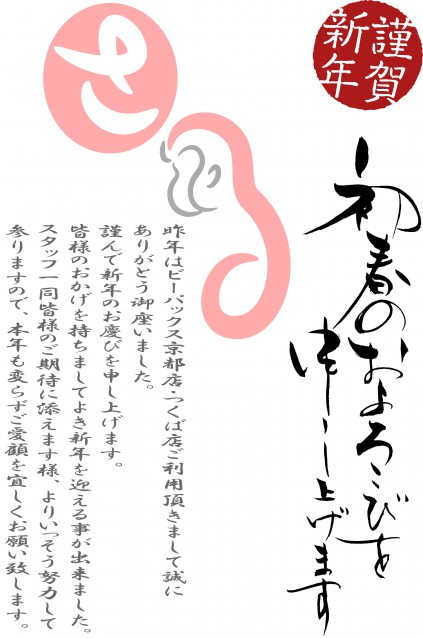 謹賀
新年
初春のおよろこびを
申し上げます
さる
昨年はビーバックス京都店・つくば店ご利用頂きまして誠に
ありがとう御座いました。
謹んで新年のお慶びを申し上げます。
皆様のおかげを持ちましてよき新年を迎える事が出来ました。
スタッフ一同皆様のご期待に添えます様、よりいっそう努力して
参りますので、本年も変らずご愛顧を宜しくお願い致します。